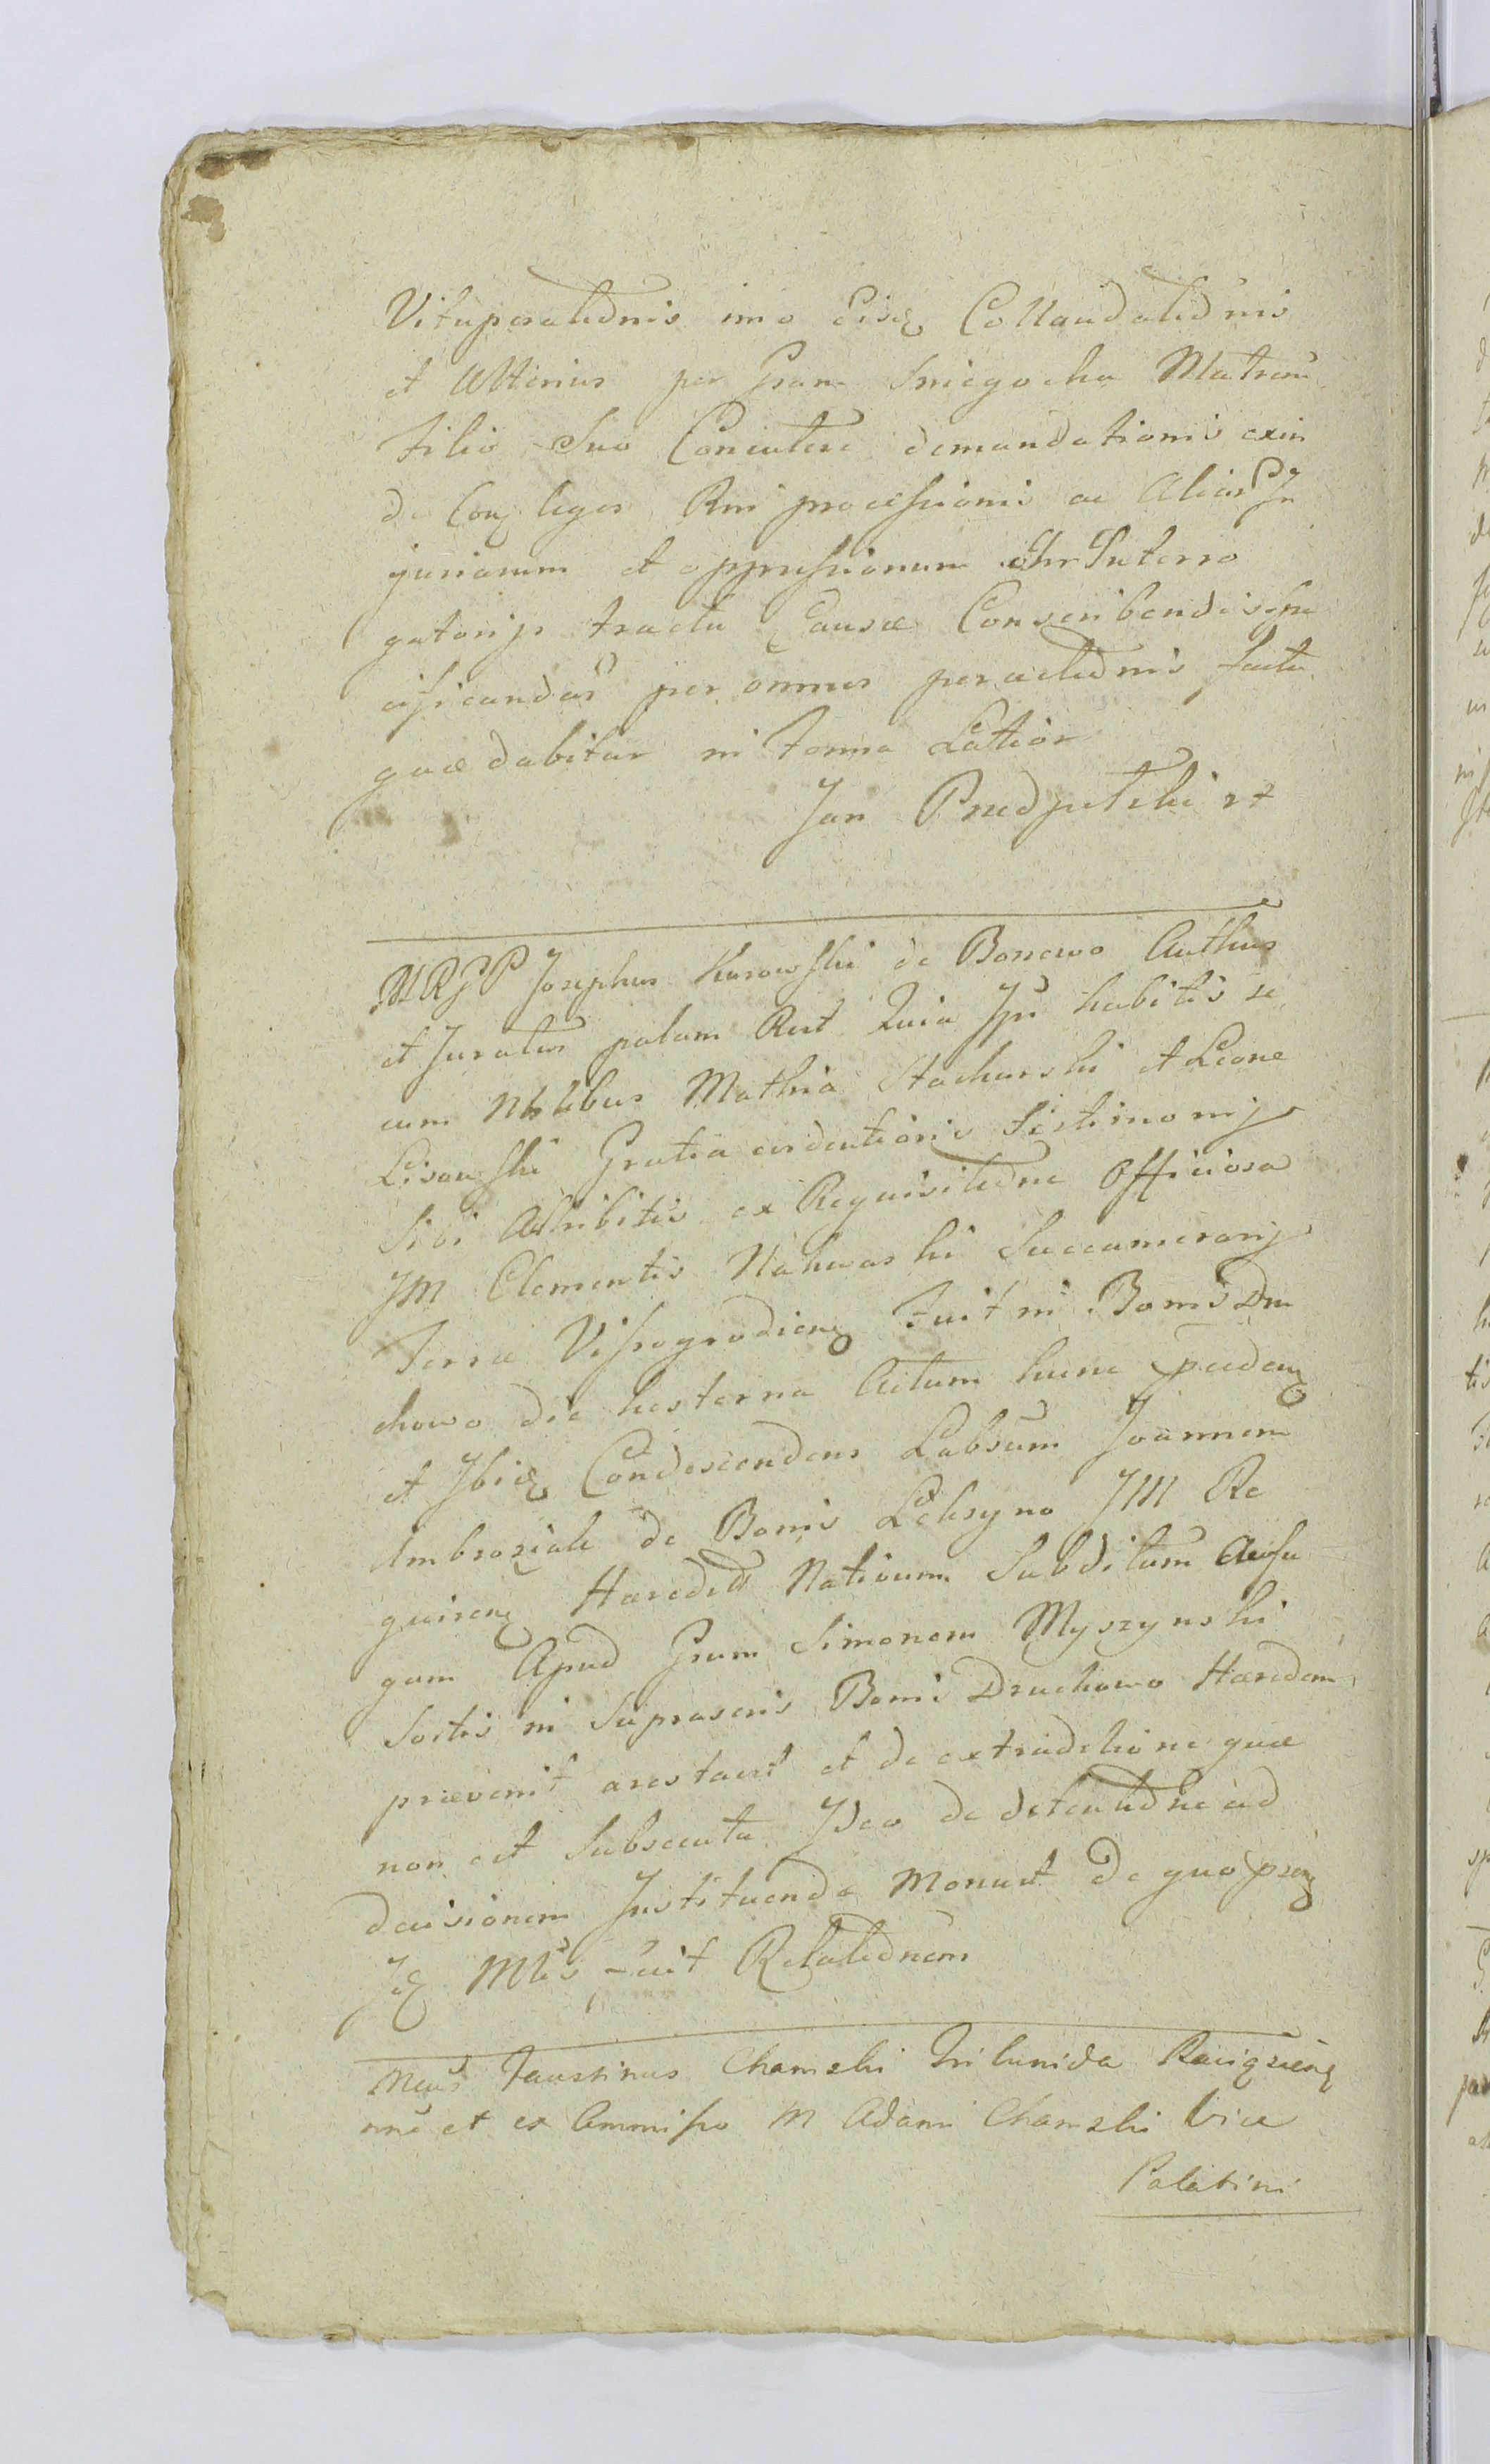 Vituperationis imo Eisq Collaudationis
et Ulterius per Gram Sniegocka Matrem
Filio Suo Conicutere demandationis exin
de Conq leges Rni processionis ac Aliar In
juriarum et oppressionum Interro
gatorijs tractu Causae Conscribendis spe
cificandar per omnes peractionis facta
quae dabitur in Forma Latior
Jan Przedpełski
MRGP Josephus Kurowski de Bonewo Authus
et Juratus palam Rect Quia Ipse habitis se
cum Nblibus Mathia Stachurski et Leone
Lisowski Gratia evidentioris testimonij
Sibi Adhibitis ex Requisitione Officiosa
JM Clementis Nakwaski Succamerarij
Terrae Vissogrodienq Fuit in Bonis Dru
chowo die hesterna Actum hunc praedenq
et Ibiq Condescendens Labsum Joannem
Ambroziak de Bonis Leksyno JM Re
quirenq Haeredit Nativum Subditum Aufu
gum Apud Grum Simonem Myszynski
Sortis in Suprascris Bonis Druchowo Haeredem
praevenit arestavit et de extraditione quae
non est Subsecuta Ideo de detentione ad
decisionem Instituenda Monuit De quo praenq
Jq Mles fecit Relationem
Faustinus Chamski Tribunida Raciązenq
nne et ex Commisso M Adami Chamski Vice
Palatini